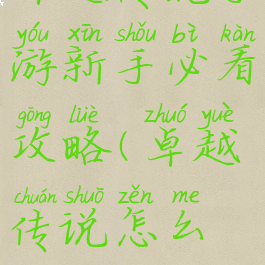 yóu xīn shǒu bì kàn
游新手必看
gōng lüè zhuó yuè
攻略(卓越
chuán shuō zěn me
传说怎么